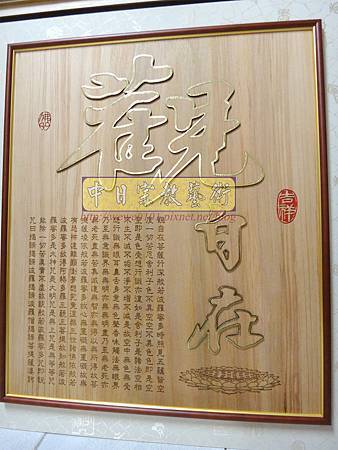 觀自在
佛心
吉祥
中日宗教藝術
觀自在菩薩行深般若波羅蜜多時照見五蘊皆空
度一切苦厄舍利子色不異空空不異色色即是空
空即是色受想行識亦復如是舍利子是諸法空相
不生不滅不垢不淨不增不減是故空中無色無受
想行識無眼耳鼻舌身意無色聲香味觸法無眼界
乃至無意識界無無明亦無無明盡乃至無老死亦
無老死盡無苦集滅道無智亦無得以無所得故菩
提薩埵依般若波羅蜜多故心無罣礙無罣礙故無
有恐怖遠離顛倒夢想究竟涅槃三世諸佛依般若
波羅蜜多故得阿耨多羅三藐三菩提故知般若波
羅蜜多是大神咒是大明咒是無上咒是無等等咒
能除一切苦真實不虛故說般若波羅蜜多咒即說
咒曰揭諦揭諦波羅揭諦波羅僧揭諦菩提薩婆訶